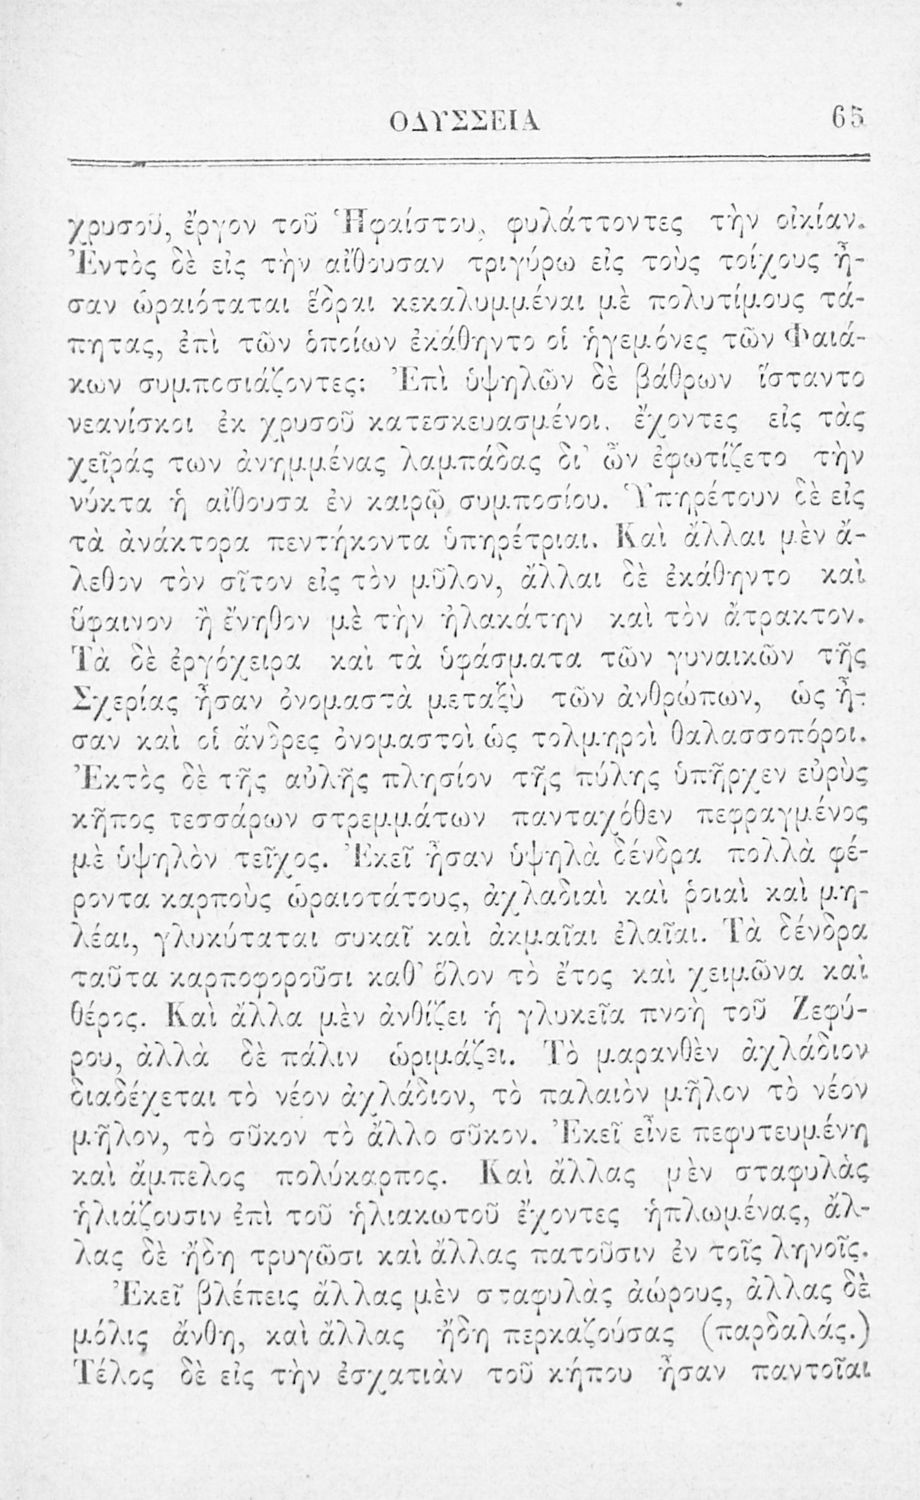 ΟΔΥΣΣΕΙΑ 65
χρυσοῦ, ἔργον τοῦ Ἡφαίστου, φυλάττοντες τὴν οἰκίαν.
Ἐντὸς δὲ εἰς τὴν αἴθουσαν τριγύρω εἰς τοὺς τοίχους ἦ-
σαν ὡραιόταται ἕδραι κεκαλυμμέναι μὲ πολυτίμους τά-
πητας, ἐπὶ τῶν ὁποίων ἐκάθηντο οἱ ἡγεμόνες τῶν Φαιά-
κων συμποσιάζοντες: Ἐπὶ ὑψηλῶν δὲ βάθρων ἵσταντο
νεανίσκοι ἐκ χρυσοῦ κατεσκευασμένοι. ἔχοντες εἰς τὰς
χεῖράς των ἀνημμένας λαμπάδας δι' ὧν ἐφωτίζετο τὴν
νύκτα ἡ αἴθουσα ἐν καιρῷ συμποσίου. Ὑπηρέτουν δὲ εἰς
τὰ ἀνάκτορα πεντήκοντα ὑπηρέτριαι. Καὶ ἄλλαι μὲν ἄ-
λεθον τὸν σῖτον εἰς τὸν μῦλον, ἄλλαι δὲ ἐκάθηντο καὶ
ὕφαινον ἢ ἔνηθον μὲ τὴν ἠλακάτην καὶ τὸν ἄτρακτον.
Τὰ δὲ ἐργόχειρα καὶ τὰ ὑφάσματα τῶν γυναικῶν τῆς
Σχερίας ἦσαν ὀνομαστὰ μεταξὺ τῶν ἀνθρώπων, ὡς ἦ-
σαν καὶ οἱ ἄνδρες ὀνομαστοὶ ὡς τολμηροὶ θαλασσοπόροι.
Ἐκτὸς δὲ τῆς αὐλῆς πλησίον τῆς πύλης ὑπῆρχεν εὐρὺς
κῆπος τεσσάρων στρεμμάτων πανταχόθεν πεφραγμένος
μὲ ὑψηλὸν τεῖχος. Ἐκεῖ ἦσαν ὑψηλὰ δένδρα πολλὰ φέ-
ροντα καρποὺς ὡραιοτάτους, ἀχλαδιαὶ καὶ ῥοιαὶ καὶ μη-
λέαι, γλυκύταται συκαῖ καὶ ἀκμαῖαι ἐλαῖαι. Τὰ δένδρα
ταῦτα καρποφοροῦσι καθ' ὅλον τὸ ἔτος καὶ χειμῶνα καὶ
θέρος. Καὶ ἄλλα μὲν ἀνθίζει ἡ γλυκεῖα πνοὴ τοῦ Ζεφύ-
ρου, ἀλλὰ δὲ πάλιν ὡριμάζει. Τὸ μαρανθὲν ἀχλάδιον
διαδέχεται τὸ νέον ἀχλάδιον, τὸ παλαιὸν μῆλον τὸ νέον
μῆλον, τὸ σῦκον τὸ ἄλλο σῦκον. Ἐκεῖ εἶνε πεφυτευμένη
καὶ ἄμπελος πολύκαρπος. Καὶ ἄλλας μὲν σταφυλὰς
ἡλιάζουσιν ἐπὶ τοῦ ἡλιακωτοῦ ἔχοντες ἡπλωμένας, ἄλ-
λας δὲ ἤδη τρυγῶσι καὶ ἄλλας πατοῦσιν ἐν τοῖς ληνοῖς.
Ἐκεῖ βλέπεις ἄλλας μὲν σταφυλὰς ἀώρους, ἄλλας δὲ
μόλις ἄνθη, καὶ ἄλλας ἤδη περκαζούσας (παρδαλάς.)
Τέλος δὲ εἰς τὴν ἐσχατιὰν τοῦ κήπου ἦσαν παντοῖαι